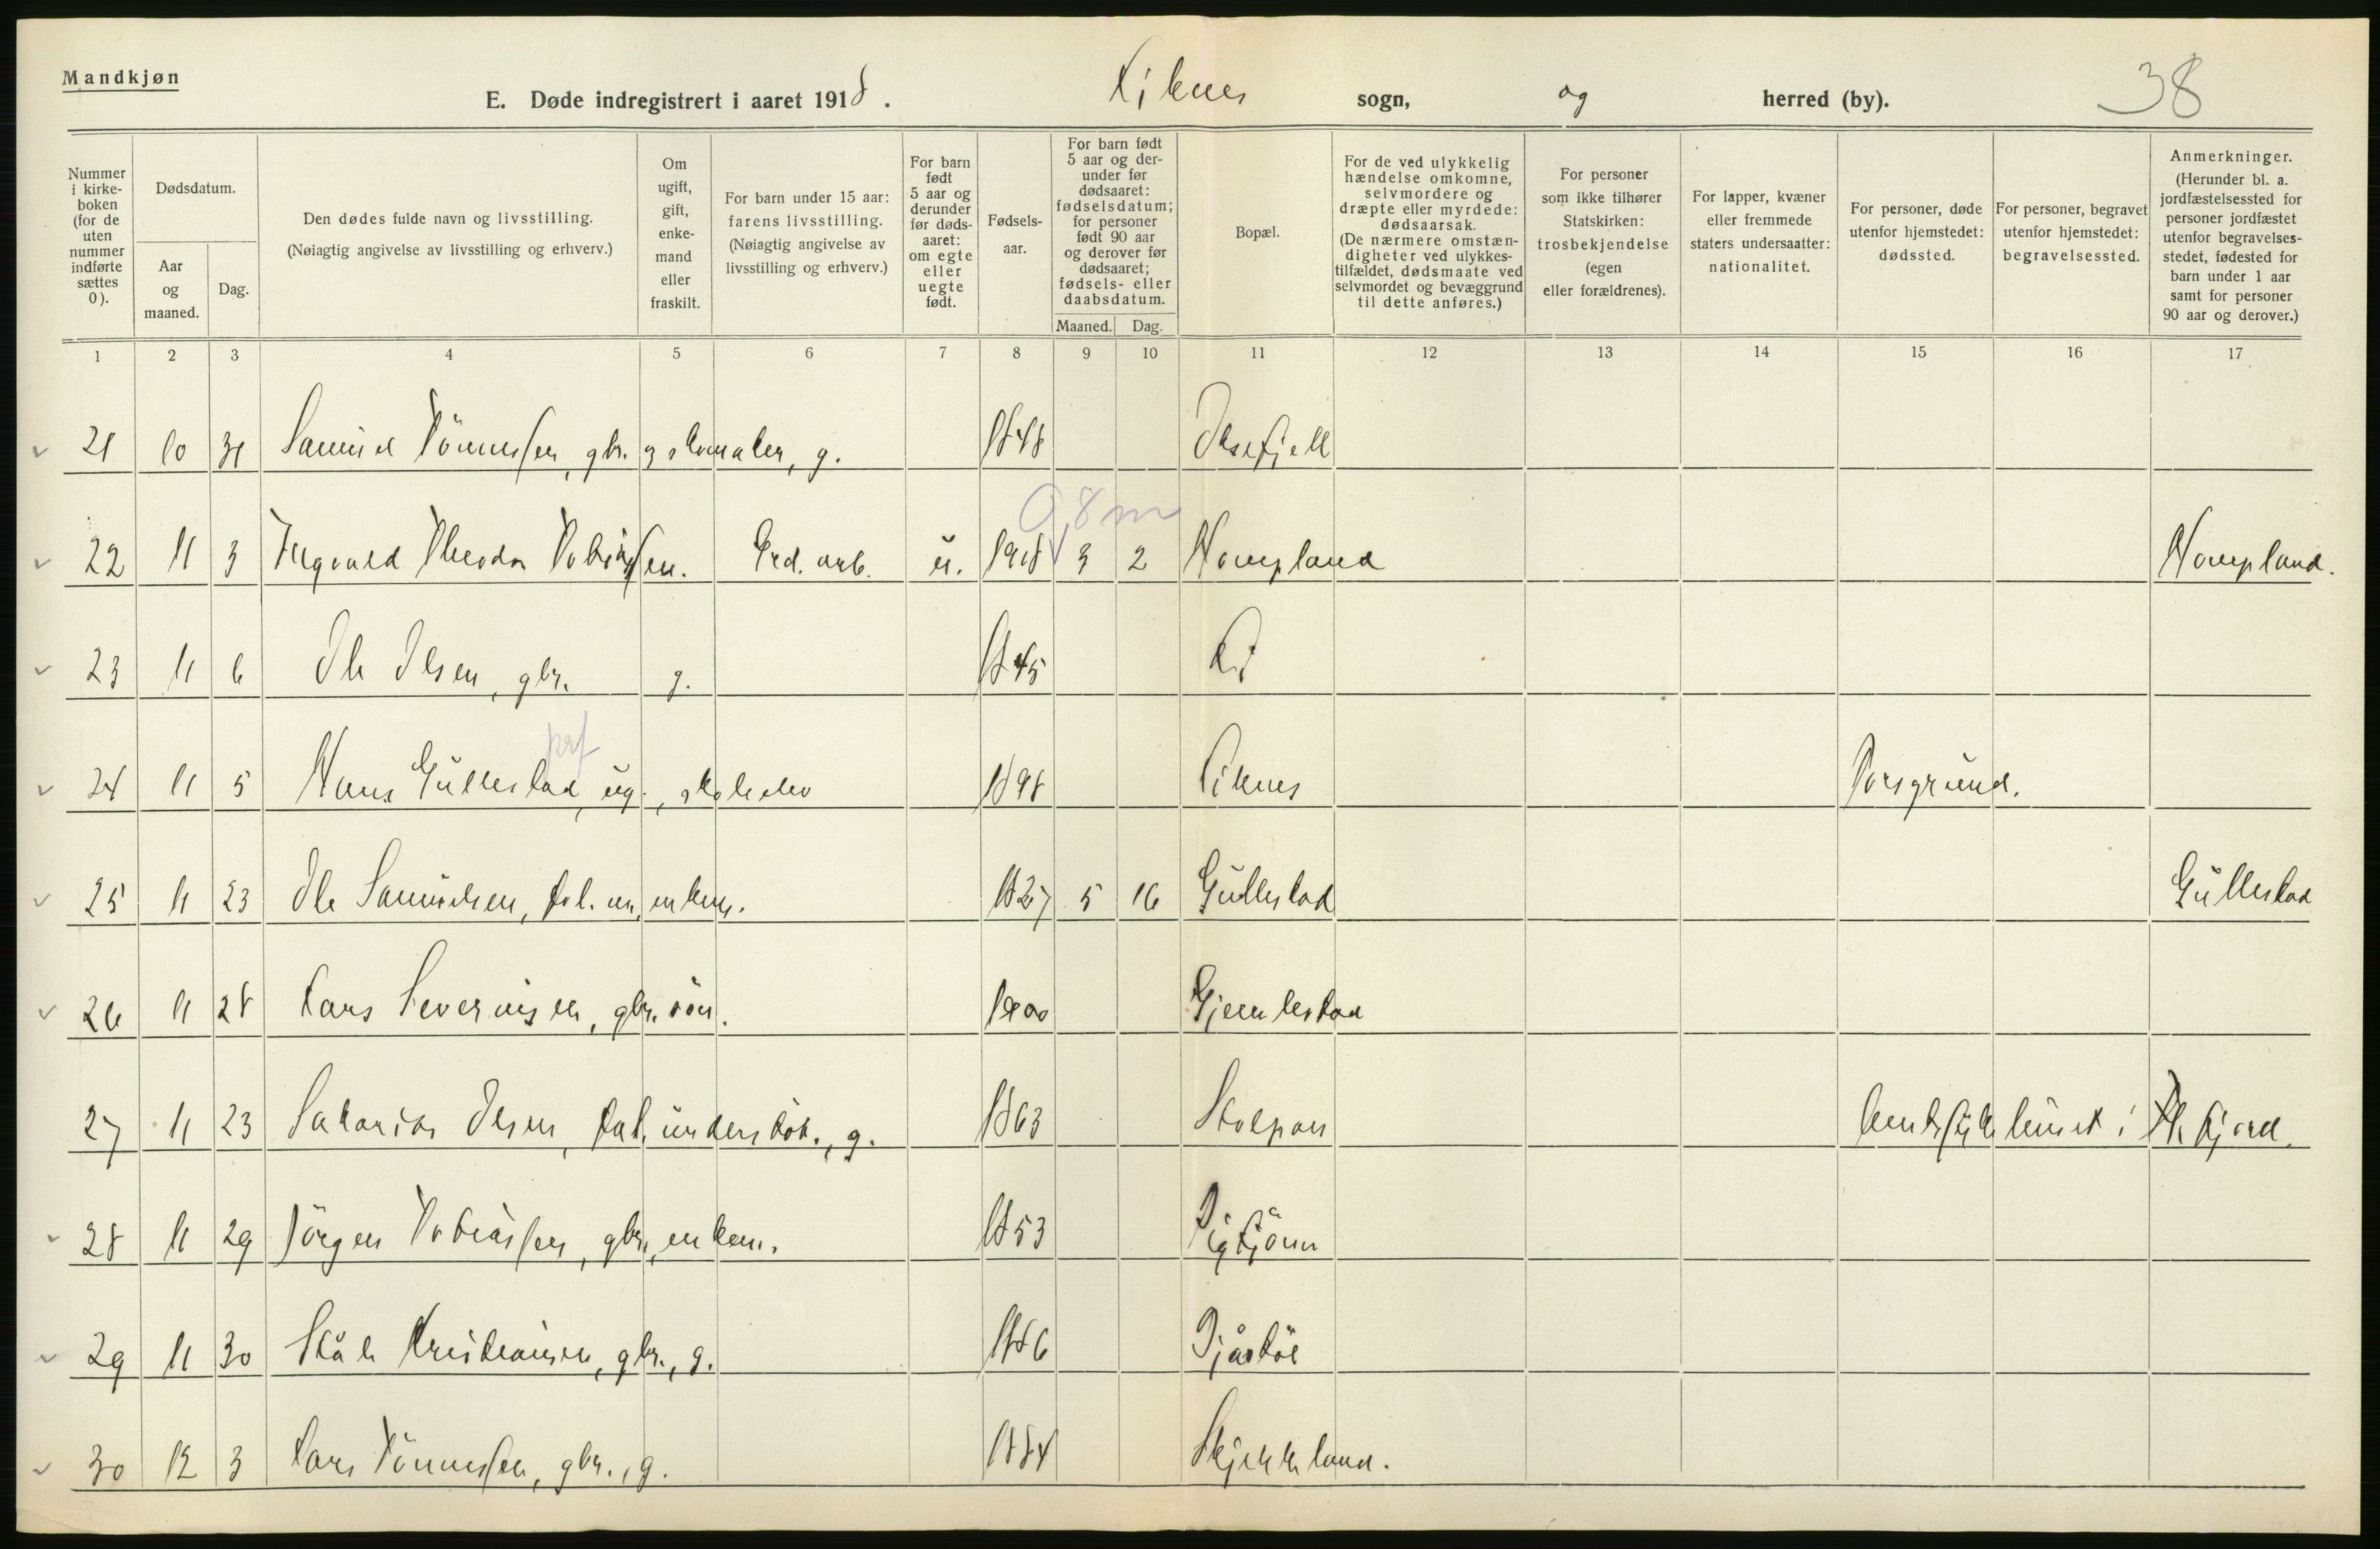 Mandkjøn
E. Døde indregistrert i aaret 1918. Liknes sogn, og herred (by). 38
Nummer i kirke-boken (for de uten nummer indførte sættes 0).
Dødsdatum.
Aar og maaned.
Dag.
Den dødes fulde navn og livsstilling.
(Nøiagtig angivelse av livsstilling og erhverv.)
Om ugift, gift, enke-mand eller fraskilt.
For barn under 15 aar: farens livsstilling.
(Nøiagtig angivelse av livsstilling og erhverv.)
For barn født 5 aar og derunder før døds-aaret: om egte eller uegte født.
Fødsels-aar.
For barn født 5 aar og der-under før dødsaaret: fødselsdatum; for personer født 90 aar og derover før dødsaaret; fødsels- eller daabsdatum.
Maaned. Dag.
Bopæl.
For de ved ulykkelig hændelse omkomne, selvmordere og dræpte eller myrdede: dødsaarsak.
(De nærmere omstæn-digheter ved ulykkes-tilfældet, dødsmaate ved selvmordet og bevæggrund til dette anføres.)
For personer som ikke tilhører Statskirken: trosbekjendelse (egen eller forældrenes).
For lapper, kvæner eller fremmede staters undersaatter: nationalitet.
For personer, døde utenfor hjemstedet: dødssted.
For personer, begravet utenfor hjemstedet: begravelsessted.
Anmerkninger.
(Herunder bl. a. jordfæstelsessted for personer jordfæstet utenfor begravelses-stedet, fødested for barn under 1 aar samt for personer 90 aar og derover.)
1 2 3 4 5 6 7 8 9 10 11 12 13 14 15 16 17
21 10 31 Samuel Tönnesen, gbr. g. 1848
0,8 m
22 11 3 Theodor Tobiassen. Grd. arb. u. 1918 3 2
23 11 6 Ole Olsen, gbr. g. 1845
prf
24 11 5 Hans Gullestad, ug., skoleelev 1898 Liknes Porsgrund.
25 11 23 Ole Samuelsen, enkem. 1827 5 16 Gullestad Gullestad
26 11 28 Lars Severinsen, gbr. sön. 1900 Gjemlestad
27 11 23 Sakarias Olsen, understöt., g. 1863 Stolpen Flekkefjord.
28 11 29 Jörgen Tobiassen, gbr., enkem. 1853
29 11 30 Ståle Kristiansen, gbr., g. 1886
30 12 3 Lars Tönnessen, gbr., g. 1884